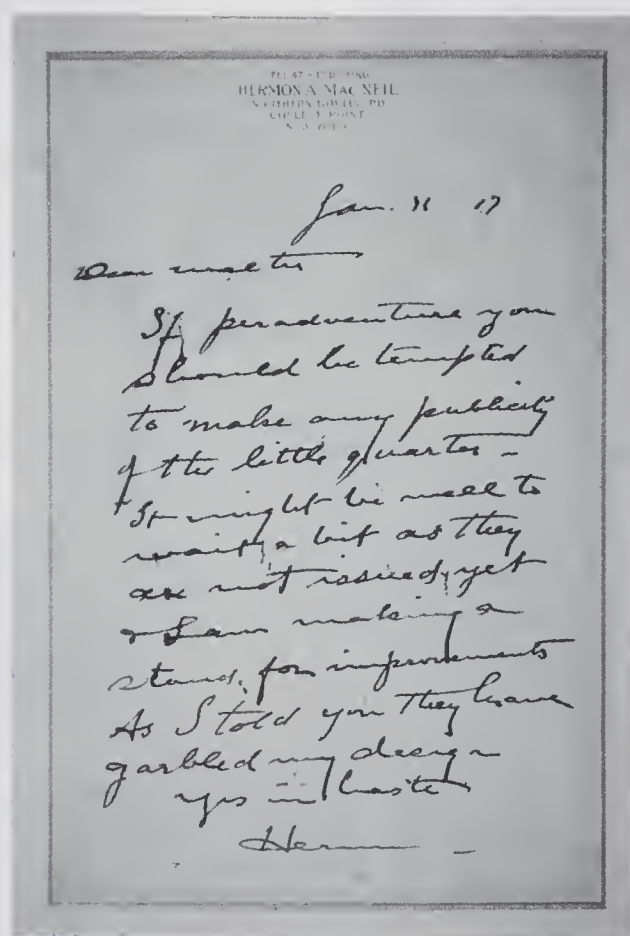 HERMON A. MAC NEIL
COLLEGE POINT
Jan. 11 17
Dear Walter
If peradventure you
should be tempted
to make any publicity
of the little quarter –
It might be well to
wait a bit as they
are not issued yet
& I am making a
stand for improvements
As I told you they have
garbled my design
Yrs in haste
Hermon –